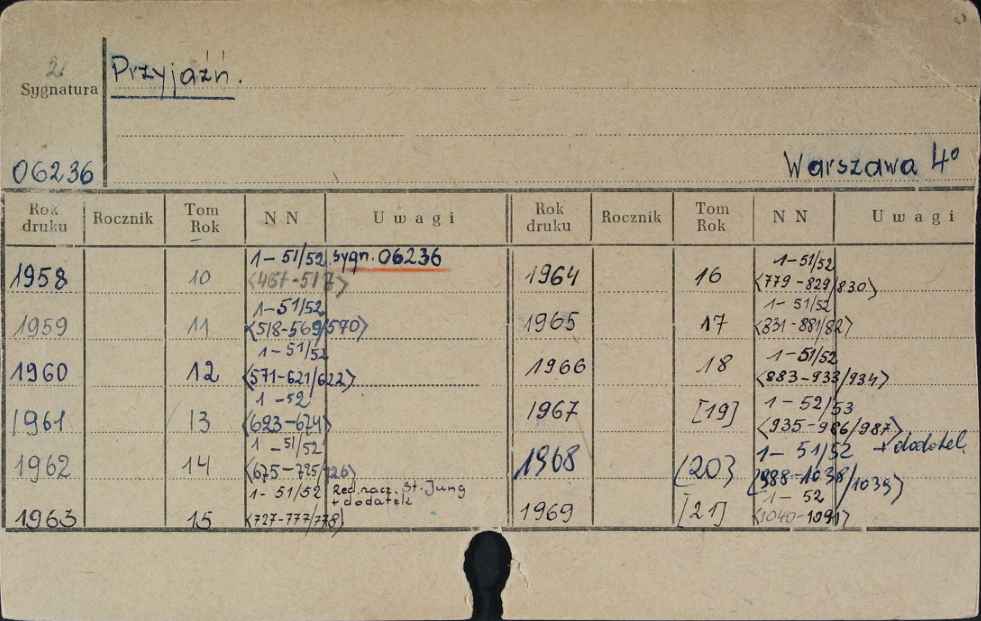 2.
Sygnatura
Przyjaźń.
06236
Warszawa 4°
Rok druku Rocznik Tom Rok NN Uwagi Rok druku Rocznik Tom Rok NN Uwagi
1958 10 1-51/52 sygn. 06236
<467-517>
1959 11 1-51/52
<518-569/570>
1960 12 1-51/52
<571-621/622>
1961 13 1-52
<623-674>
1962 14 1-51/52
<675-725/726>
1963 15 1-51/52 Red. nacz. St. Jung
+ dodatek
<727-777/778>
1964 16 1-51/52
<779-829/830>
1965 17 1-51/52
<831-881/82>
1966 18 1-51/52
<883-933/934>
1967 [19] 1-52/53
<935-986/987>
1968 [20] 1-51/52 + dodatek
<988-1038/1039>
1969 [21] 1-52
<1040-1091>